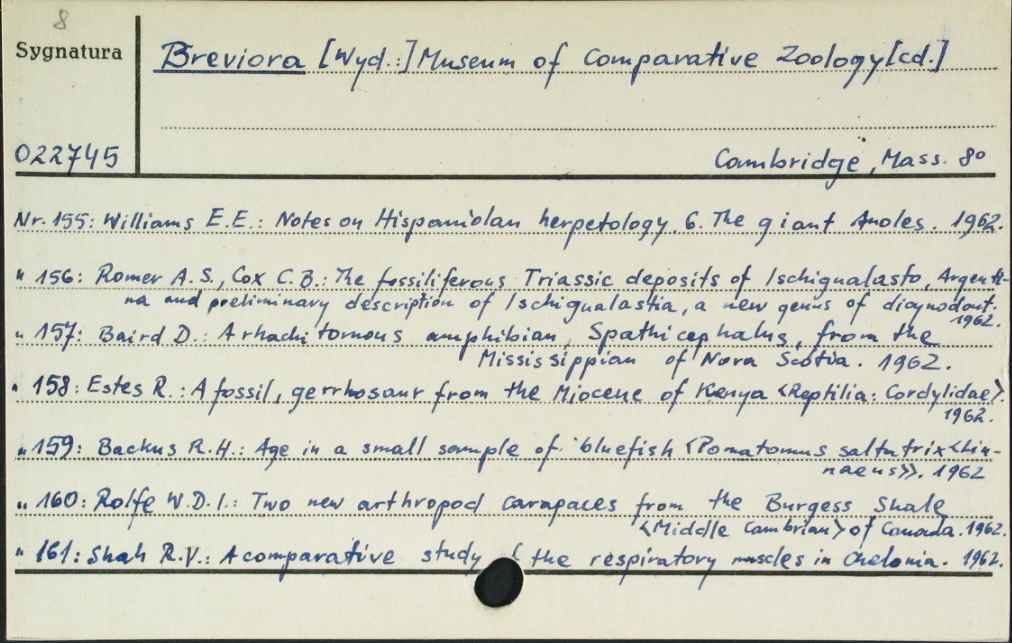 8
Sygnatura
Breviora [Wyd.:] Museum of Comparative Zoology [cd.]
022745
Cambridge, Mass. 8º
Nr. 155: Williams E.E.: Notes on Hispaniolan herpetology. 6. The giant Anoles. 1962.
" 156: Romer A. S., Cox C. B.: The fossiliferous Triassic deposits of Ischigualasto, Argenti-
na and preliminary description of Ischigualastia, a new genus of dicynodont.
1962.
" 157: Baird D.: A rhachitomous amphibian, Spathicephalus, from the
Mississippian of Nova Scotia. 1962.
" 158: Estes R.: A fossil, gerrhosaur from the Miocene of Kenya <Reptilia: Cordylidae>.
1962.
" 159: Backus R.H.: Age in a small sample of bluefish <Pomatomus saltatrix <Lin-
naeus>>. 1962
" 160: Rolfe W.D.I.: Two new arthropod carapaces from the Burgess Shale
<Middle Cambrian> of Canada. 1962.
" 161: Shah R.V.: A comparative study of the respiratory muscles in Chelonia. 1962.